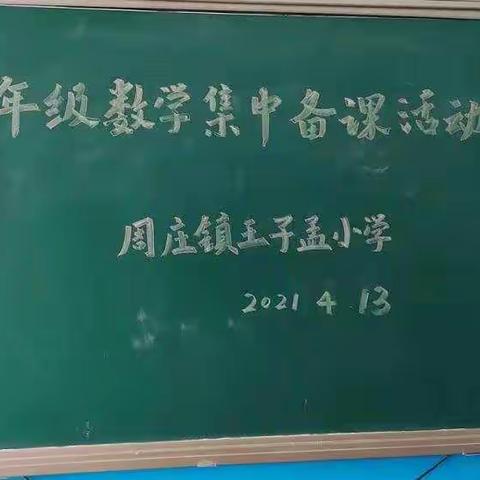 年级数学集中备课活动
周庄镇王子孟小学
2021 4.13